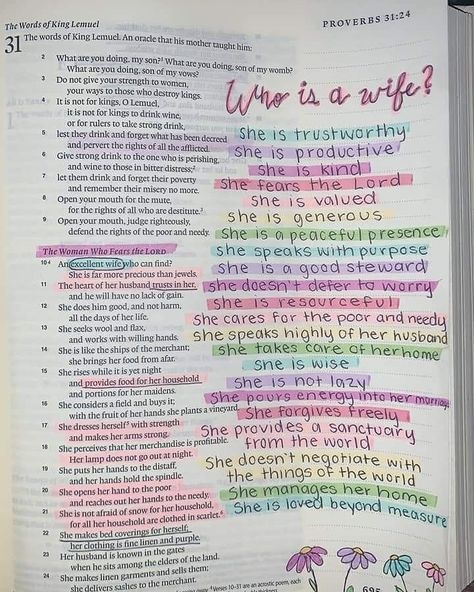 The Words of King Lemuel
PROVERBS 31:24
31 The words of King Lemuel. An oracle that his mother taught him:
2 What are you doing, my son? What are you doing, son of my womb?
What are you doing, son of my vows?
3 Do not give your strength to women,
your ways to those who destroy kings.
4 It is not for kings, O Lemuel,
it is not for kings to drink wine,
or for rulers to take strong drink,
5 lest they drink and forget what has been decreed
and pervert the rights of all the afflicted.
6 Give strong drink to the one who is perishing,
and wine to those in bitter distress;
7 let them drink and forget their poverty
and remember their misery no more.
8 Open your mouth for the mute,
for the rights of all who are destitute.
9 Open your mouth, judge righteously,
defend the rights of the poor and needy.
The Woman Who Fears the LORD
10 An excellent wife who can find?
She is far more precious than jewels.
11 The heart of her husband trusts in her,
and he will have no lack of gain.
12 She does him good, and not harm,
all the days of her life.
13 She seeks wool and flax,
and works with willing hands.
14 She is like the ships of the merchant;
she brings her food from afar.
15 She rises while it is yet night
and provides food for her household
and portions for her maidens.
16 She considers a field and buys it;
with the fruit of her hands she plants a vineyard.
17 She dresses herself with strength
and makes her arms strong.
18 She perceives that her merchandise is profitable.
Her lamp does not go out at night.
19 She puts her hands to the distaff,
and her hands hold the spindle.
20 She opens her hand to the poor
and reaches out her hands to the needy.
21 She is not afraid of snow for her household,
for all her household are clothed in scarlet.
22 She makes bed coverings for herself;
her clothing is fine linen and purple.
23 Her husband is known in the gates
when he sits among the elders of the land.
24 She makes linen garments and sells them;
she delivers sashes to the merchant.
Verses 10–31 are an acrostic poem, each
Who is a wife?
She is trustworthy
She is productive
She is kind
She fears the Lord
She is valued
She is generous
She is a peaceful presence
She speaks with purpose
She is a good steward
She doesn't defer to worry
She is resourceful
She cares for the poor and needy
She speaks highly of her husband
She takes care of her home
She is wise
She is not lazy
She pours energy into her marriage
She forgives freely
She provides a sanctuary
from the world
She doesn't negotiate with
the things of the world
She manages her home
She is loved beyond measure
695